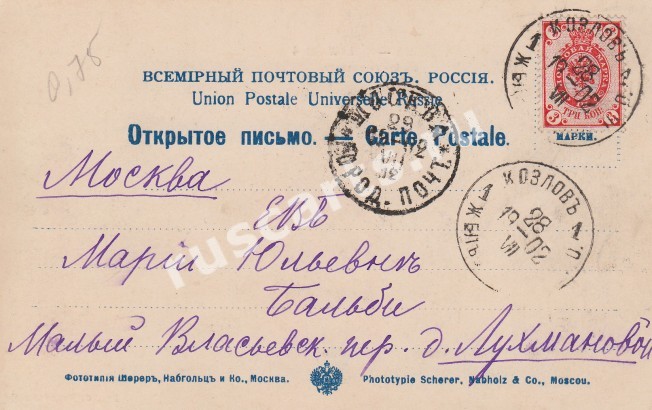 0,75
ВСЕМІРНЫЙ ПОЧТОВЫЙ СОЮЗЪ. РОССІЯ.
Union Postale Universelle Russie
Открытое письмо. — Carte Postale.
МАРКИ.
ТРИ КОП.
3 3
КОЗЛОВЪ
1
28
VII
1902
МОСКВА
28
VII
ГОРОД. ПОЧТ.
КОЗЛОВЪ
1
28
VII
1902
Москва
ЕВЪ
Маріи Юльевнѣ
Бальби
Малый Власьевск. пер. д. Лухмановой
Фототипія Шереръ, Набгольцъ и Ко., Москва.
Phototypie Scherer, Nabholz & Co., Moscou.